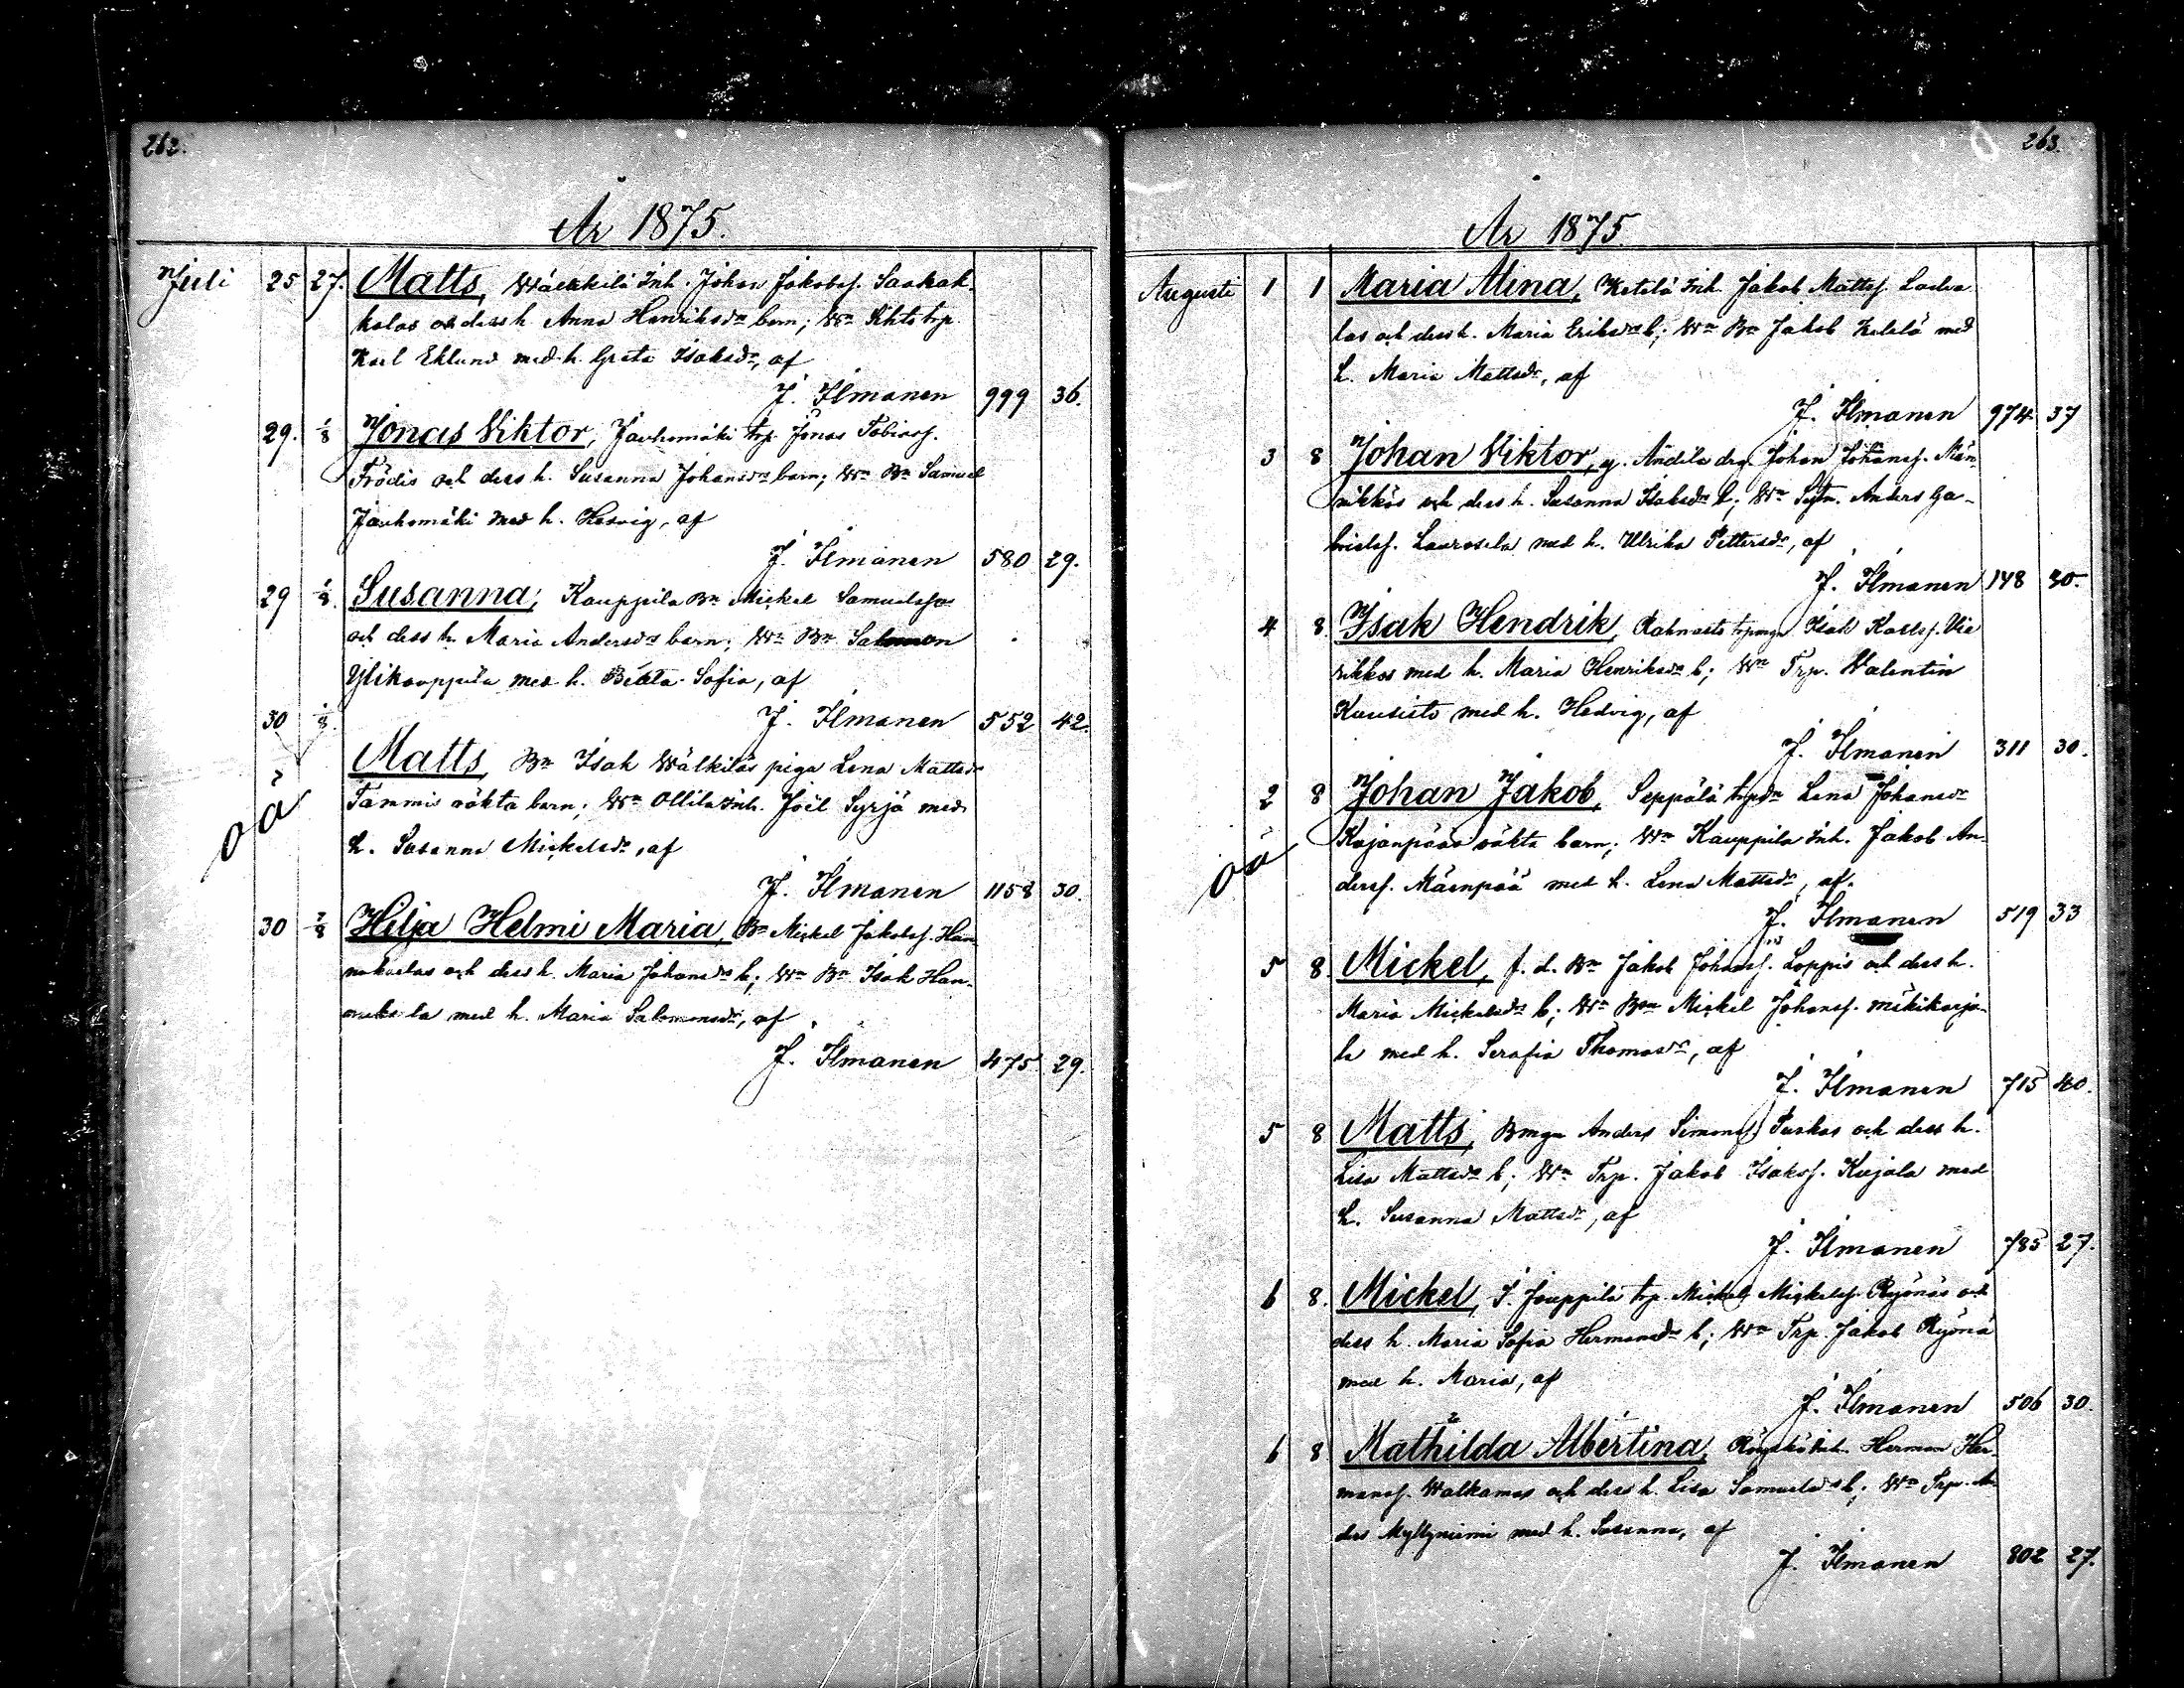 262.
År 1875.
Juli 25 27. Matts, Inh. Johan Jakobsf.
kolas och dess h. Anna Henriksdr barn; Wn trp.
Karl Eklund med h. Greta Isaksdr, af
J. Ilmanen 999 36.
29. 1/8 Jonas Viktor, Jauhomäki trp. Jonas Tobiasf.
Frödis och dess h. Susanna Johansdr barn; Wn Bn Samuel
Jauhomäki med h. Hedvig, af
J. Ilmanen 580 29.
29 1/8. Susanna, Kauppila Bn Mickel Samuelsson
och dess h. Maria Andersdr barn; Wn Bn Salomon
Ylikauppila med h. Beata Sofia, af
J. Ilmanen 552 42.
30 1/8. Matts, Bn Isak Wälkiläs piga Lena Mattsdr
Tammis oäkta barn; Wn Ollila Inh. Joël Syrjä med
h. Susanna Mickelsdr, af
oä
J. Ilmanen 1158 30.
30 Hilja Helmi Maria, Bn Mickel Jakobsf. Han
nukselas och dess h. Maria Johansdr b; Wn Bn Isak Han-
nuksela med h. Maria Salomonsdr, af
J. Ilmanen 475 29.
263.
År 1875
Augusti 1 1 Maria Alina, Ketelä Inh. Jakob Mattsf.
las och dess h. Maria Eriksdr b; Wn Bn Jakob Ketelä med
h. Maria Mattsdr, af
J. Ilmanen 974 37
3 8 Johan Viktor, y. Andila drg. Johan Johansf. Män
nikkös och dess h. Susanna Isaksdr b; Wn Anders Ga-
brielsf. Laurosela med h. Ulrika Pettersdr, af
J. Ilmanen 148 30.
4 8. Isak Hendrik, Isak
rikkos med h. Maria Henriksdr b; Wn Trp. Valentin
Kuusisto med h. Hedvig, af
J. Ilmanen 311 30.
2 8 Johan Jakob, Seppälä trpdr Lena Johansdr
Kojanpääs oäkta barn; Wn Kauppila Inh. Jakob An-
dersf. Mäenpää med h. Lena Mattsdr, af.
oä
J. Ilmanen 519 33
5 8. Mickel, f. d. Bn Jakob Johansf. Loppis och dess h.
Maria Mickelsdr b; Wn Bn Mickel Johansf. Mikikarja-
la med h. Serafia Thomasdr, af
J. Ilmanen 715 40.
5 8 Matts, Bmgn Anders Simonsf. Puskas och dess h.
Lisa Mattsdr b; Wn Trp. Jakob Isaksf. Kujala med
h. Susanna Mattsdr, af
J. Ilmanen 785 27.
6 8. Mickel, Jouppila trp. Mickel Mickelsf. Ryönäs och
dess h. Maria Sofia Hermansdr b; Wn Trp. Jakob Ryönä
med h. Maria, af
J. Ilmanen 506 30.
6 8 Mathilda Albertina, Inh. Herman Her-
mansf. Walkamas och dess h. Lisa Samuelsdr b; Wn Trp. An
ders Myllyniemi med h. Susanna, af
J. Ilmanen 802 27.